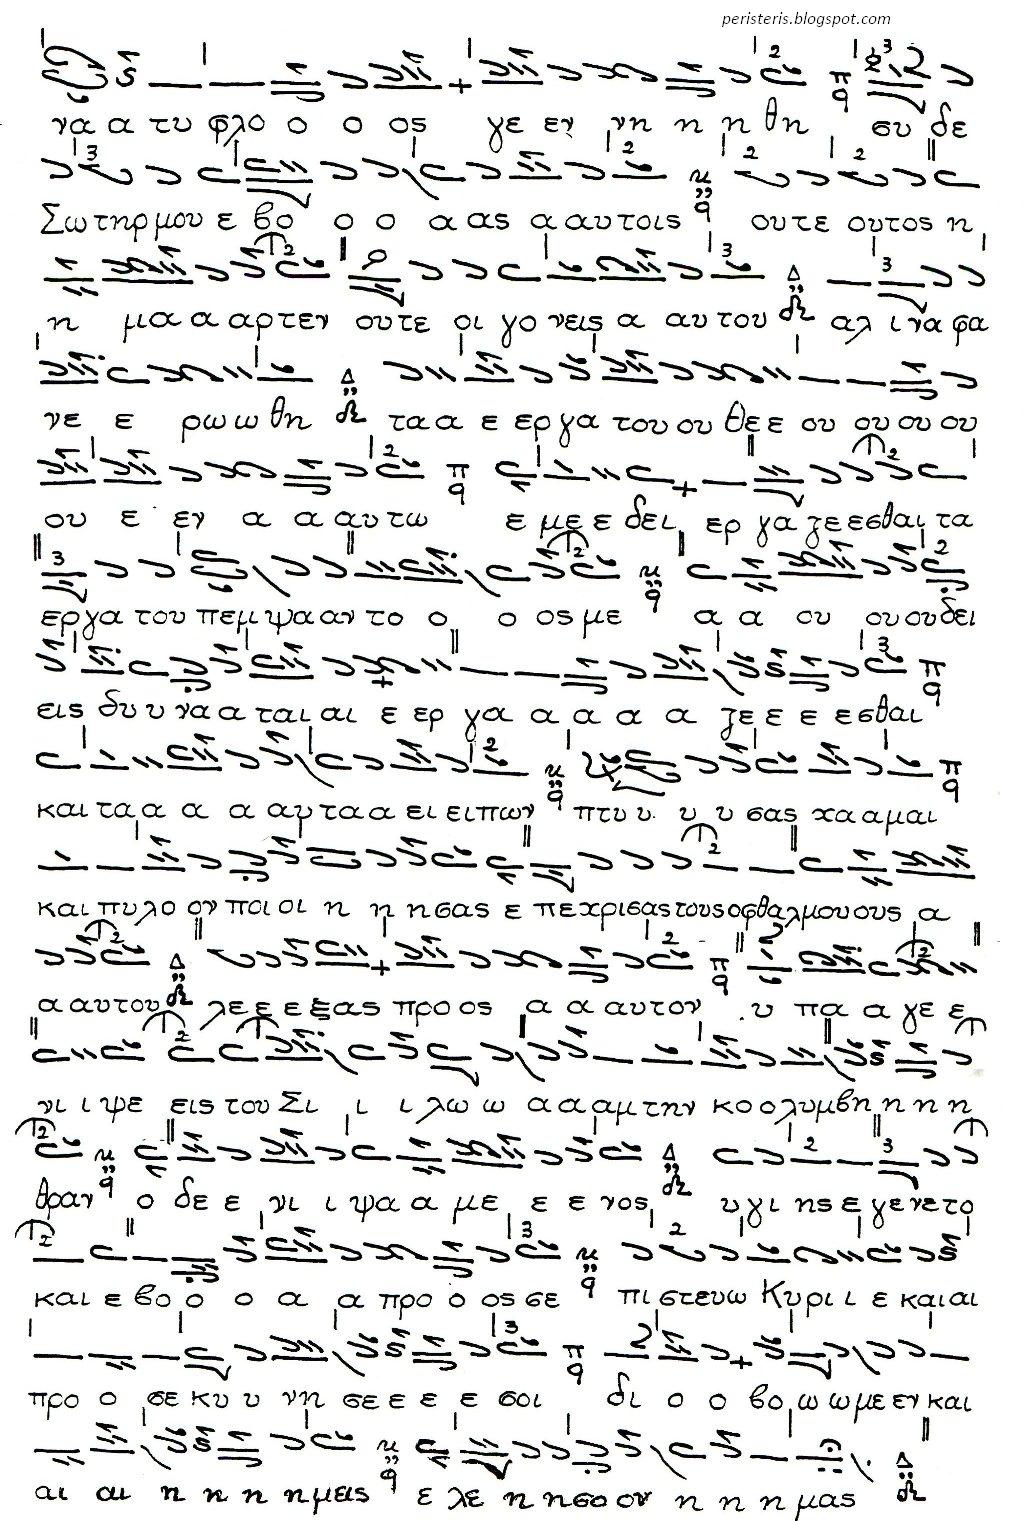 peristeris.blogspot.com
να α τυ φλο ο ο ος γε εν νη η η θη συ δε
Σω τηρ μου ε βο ο ο α ας α αυ τοις ου τε ου τος η
η μι α α α αρ τεν ου τε οι γο νεις α αυ του αλ ι να φα
νε ε ρω ω θη τα α ε ερ γα του ου θε ε ου ου ου ου
ου ε εν α α αυ τω ε με ε δει ερ γα ζε εσθαι τα
ερ γα του πεμ ψα αν το ο ο ος με α α ου ου ου δει
εις δυ υ να α ται αι ε ερ γα α α α α ζε ε ε ε εσθαι
και τα α α α αυ τα α ει ει πων πτυ υ υ υ σας χα α μαι
και πυ λο ον ποι οι η η η σας ε πε χρι σας τους οφ θαλ μου ους α
α αυ του λε ε ε ξας προ ος α α αυ τον υ πα α γε ε
νι ι ψε εις του Σι ι ι λω ω α α αμ την κο ο λυμ βη η η η
θραν ο δε ε νι ι ψα α με ε ε νος υ γι ης ε γε νε το
και ε βο ο ο α α προ ο ος σε πι στευ ω Κυ ρι ι ε και αι
προ ο σε κυ υ νη σε ε ε ε σοι δι ο ο βο ω ω με εν και
αι αι η η η η μεις ε λε η η σο ον η η η μας